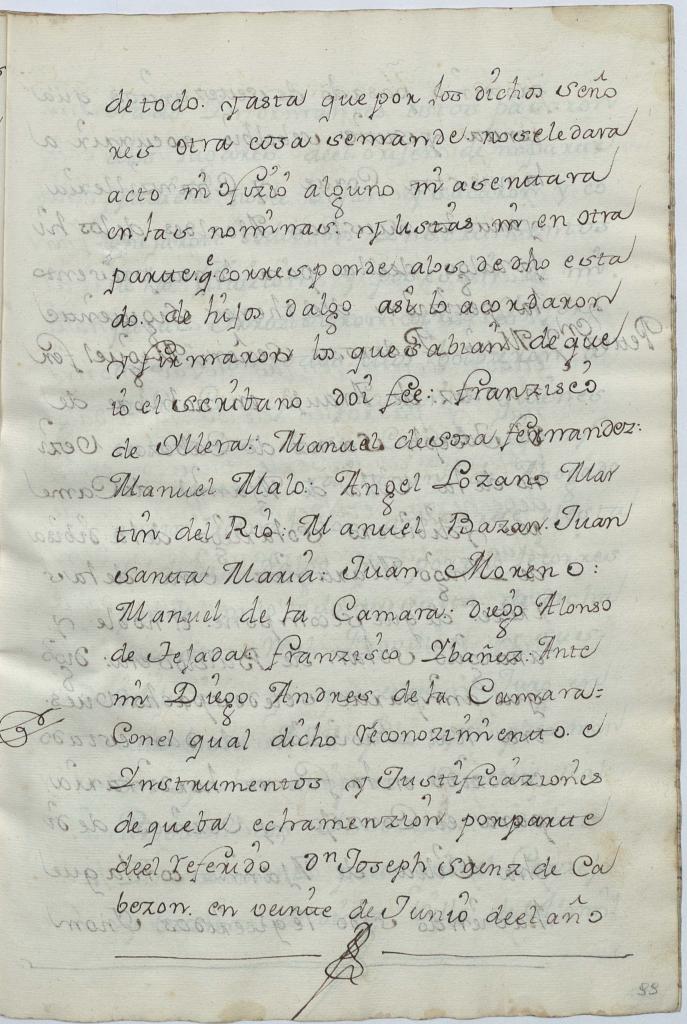 detodo. Yasta que por los dichos seño
res otra cosa semande noseledara
acto ni ofizio alguno ni asenttara
en las nominas. Y Listas ni en otra
partte. q.e corresponde alos de dho esta
do. de hijos dalgo asi lo acordaron
y firmaron los que Sabian de que
io el escribano doi fee: franzisco
de Ollera: Manuel desosa fernandez:
Manuel Malo: Angel Lozano Mar
tin del Rio: Manuel Bazan. Juan
santta Maria: Juan Moreno:
Manuel de la Camara: diego Alonso
de Tejada: franzisco Ybañez: Ante
mi Diego Andres de la Camara=
Conel qual dicho reconozimientto. e
Ynstrumentos y Justificaziones
de queba echa menzion porpartte
deel referido Dn Joseph saenz de Ca
bezon. en veintte de Junio deel año
99